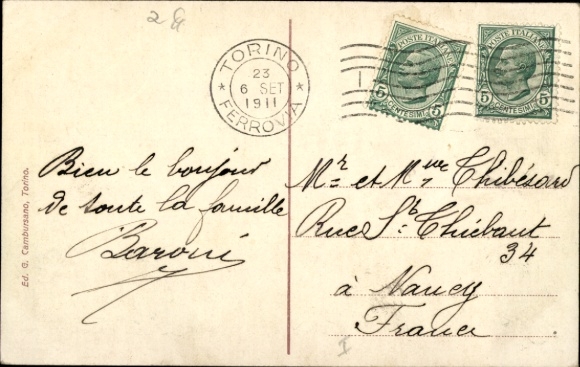 2
TORINO
23
6 SET
1911
FERROVIA
POSTE ITALIANE
5 5
CENTESIMI
POSTE ITALIANE
5 5
CENTESIMI
Bien le bonjour
de toute la famille
Baroni
Mr et Mme Thibésard
Rue St Thiébaut
34
à Nancy
France
I
Ed. G. Cambursano, Torino.